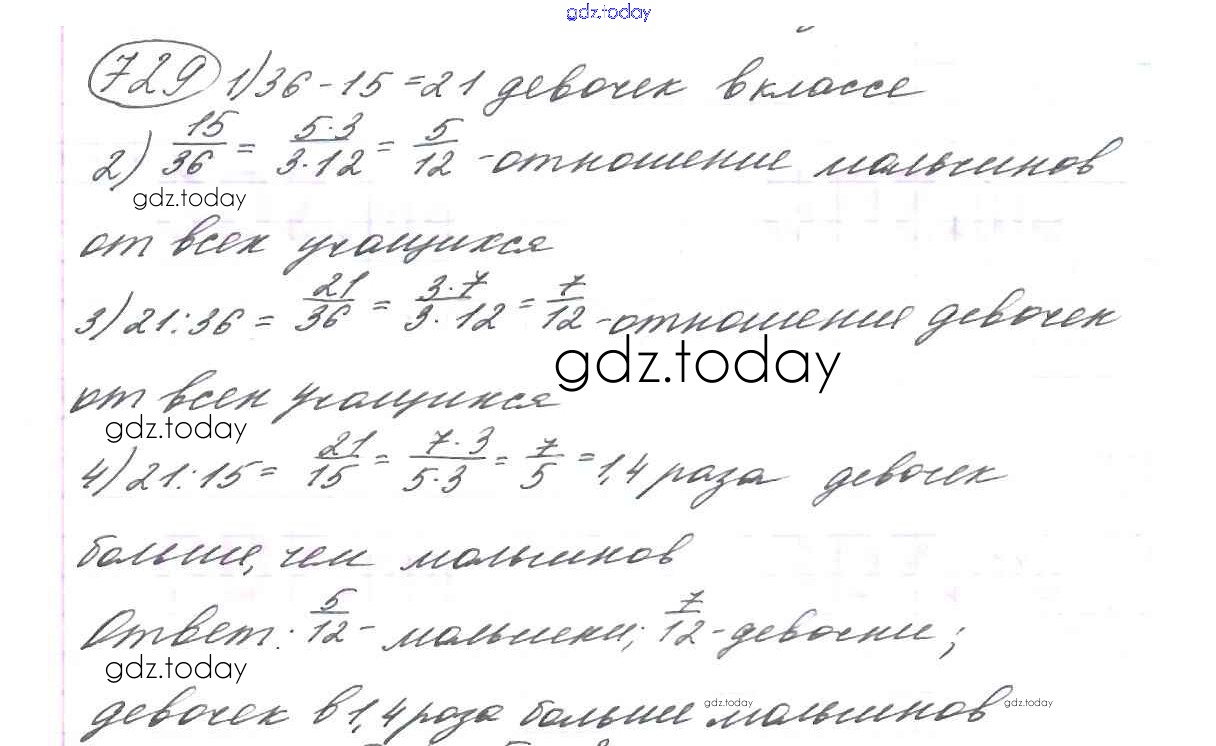 gdz.today
729 1) 36 - 15 = 21 девочек в классе
2) 15/36 = 5·3/3·12 = 5/12 - отношение мальчиков
gdz.today
от всех учащихся
3) 21 : 36 = 21/36 = 3·7/3·12 = 7/12 - отношение девочек
gdz.today
от всех учащихся
gdz.today
4) 21 : 15 = 21/15 = 7·3/5·3 = 7/5 = 1,4 раза девочек
больше, чем мальчиков
Ответ: 5/12 - мальчики; 7/12 - девочки;
gdz.today
девочек в 1,4 раза больше мальчиков
gdz.today
gdz.today